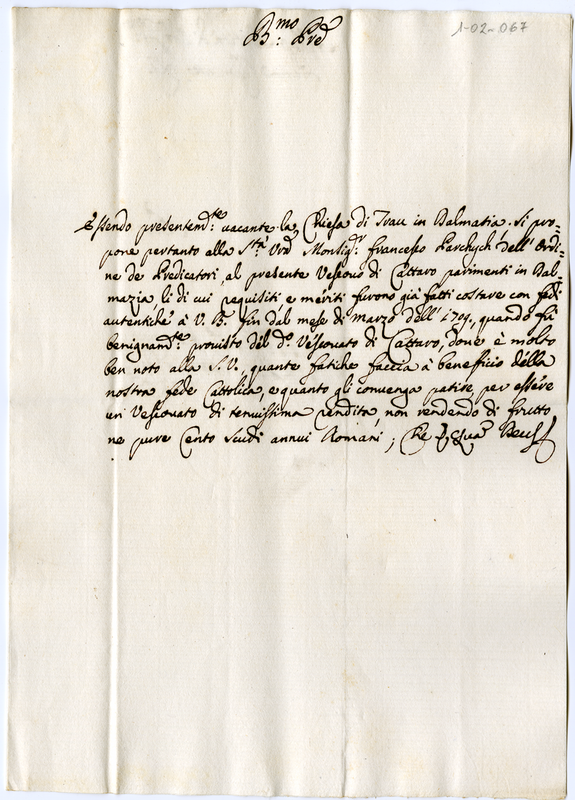 B:mo Prẽ
1-02-067
Essendo presentem:te vacante la Chiesa di Trau in Dalmatia, si pro=
pone pertanto alla S:tà Vrã Monsig:r Francesco Parchych dell' Ordi=
ne de Predicatori, al presente Vescouo di Cattaro parimenti in Dal=
mazia, li di cui requisiti, e meriti furono già fatti costare con fedi
autentiche à V. B. fin dal mese di Marzo dell' 1709, quando fù
benignam:te provisto del d:o Vescouato di Cattaro, doue è molto
ben noto alla S. V. quante fatiche faccia à beneficio della
nostra fede Cattolica, e quanto gli convenga patire per essere
un Vescouato di tenuissima rendita, non rendendo di frutto
ne pure Cento Scudi annui Romani; Che